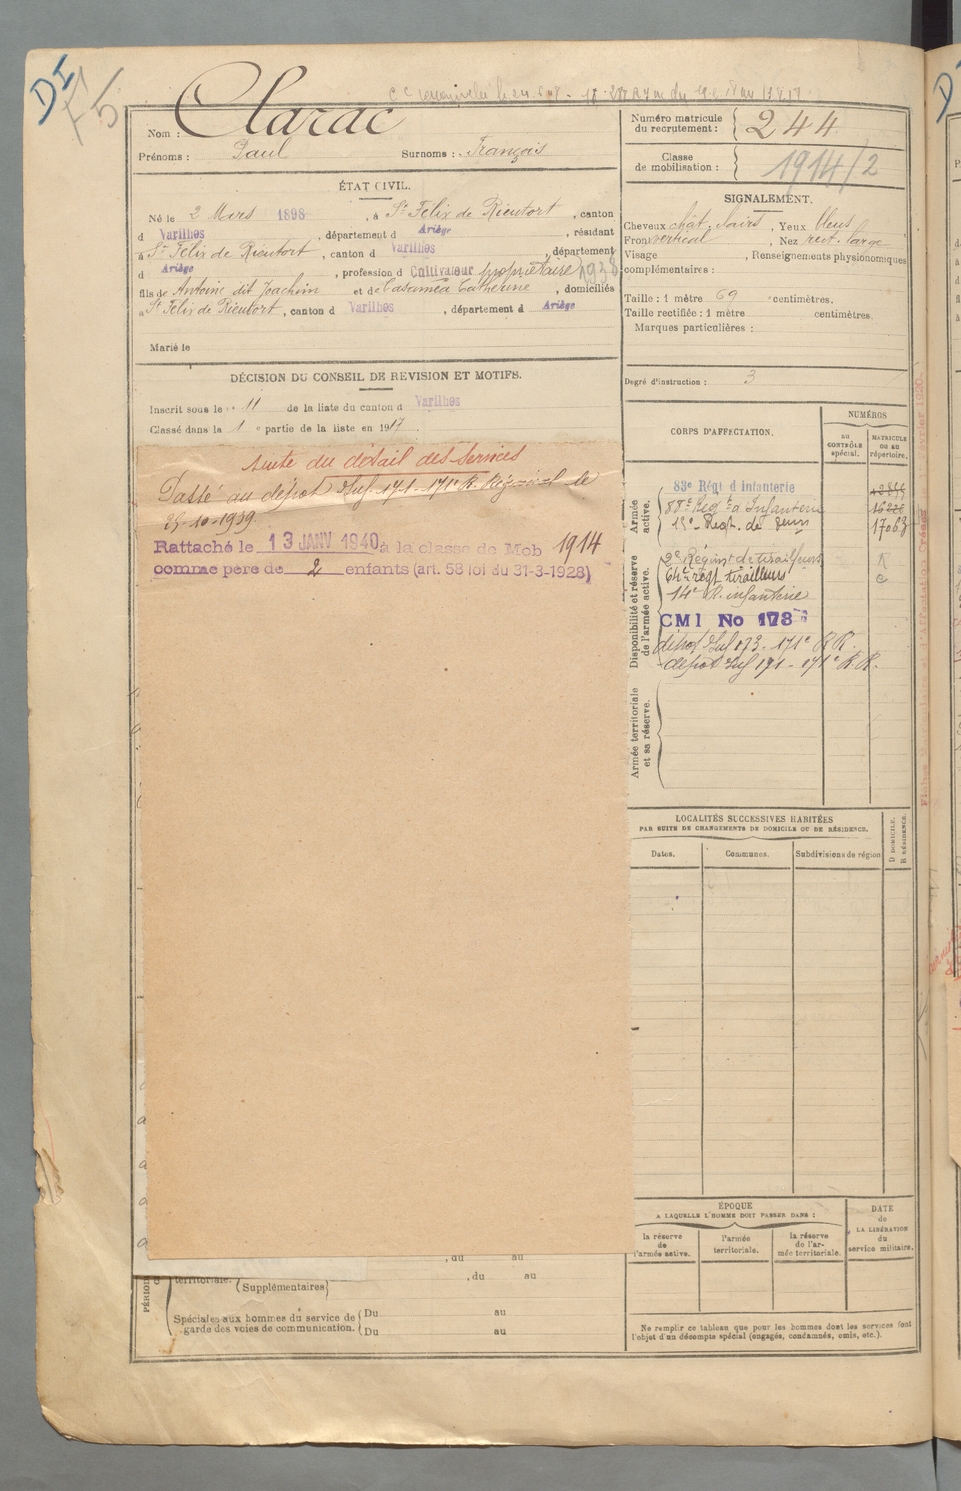 DI
Nom : Clarac
Prénoms : Paul Surnoms : François
ÉTAT CIVIL.
Né le 2 Mars 1898, à St Félix de Rieutort, canton
d Varilhes, département d Ariège, résidant
à St Félix de Rieutort, canton d Varilhes, département
d Ariège, profession d Cultivateur propriétaire
fils de Antoine dit Joachim et de Casamea Catherine, domiciliés
à St Félix de Rieutort, canton d Varilhes, département d Ariège
Marié le
DÉCISION DU CONSEIL DE REVISION ET MOTIFS.
Inscrit sous le n° 11 de la liste du canton d Varilhes
Classé dans la 1 e partie de la liste en 1917.
suite du détail des services
Passé au dépôt Inf. 171 - 171e R. Régional le
25-10-1939.
Rattaché le 13 JANV 1940 à la classe de Mob 1914
comme père de 2 enfants (art. 58 loi du 31-3-1928)
, du au
territoriale. , du au
(Supplémentaires)
Spéciales aux hommes du service de Du au
garde des voies de communication. Du au
Numéro matricule du recrutement : 244
Classe de mobilisation : 1914/2
SIGNALEMENT.
Cheveux chât. clairs, Yeux bleus
Front vertical, Nez rect. large
Visage , Renseignements physionomiques
complémentaires :
Taille : 1 mètre 69 centimètres.
Taille rectifiée : 1 mètre centimètres.
Marques particulières :
Degré d'instruction : 3
CORPS D'AFFECTATION.
NUMÉROS
au CONTRÔLE spécial.
MATRICULE ou au répertoire.
Armée active.
83e Régt d Infanterie
88e Régt d'Infanterie
15e Regt. de 17063
Disponibilité et réserve de l'armée active.
2e Régim t de tirailleurs
64e régt tirailleurs
14e R. infanterie
CMI No 173
dépôt Inf 173 - 171e R R.
dépôt Inf 171 - 171e R R.
Armée territoriale et sa réserve.
LOCALITÉS SUCCESSIVES HABITÉES
PAR SUITE DE CHANGEMENTS DE DOMICILE OU DE RÉSIDENCE.
Dates. Communes. Subdivisions de région
D DOMICILE.
R RÉSIDENCE.
ÉPOQUE
A LAQUELLE L'HOMME DOIT PASSER DANS :
la réserve de l'armée active.
l'armée territoriale.
la réserve de l'armée territoriale.
DATE de LA LIBÉRATION du service militaire.
Ne remplir ce tableau que pour les hommes dont les services font
l'objet d'un décompte spécial (engagés, condamnés, omis, etc.).